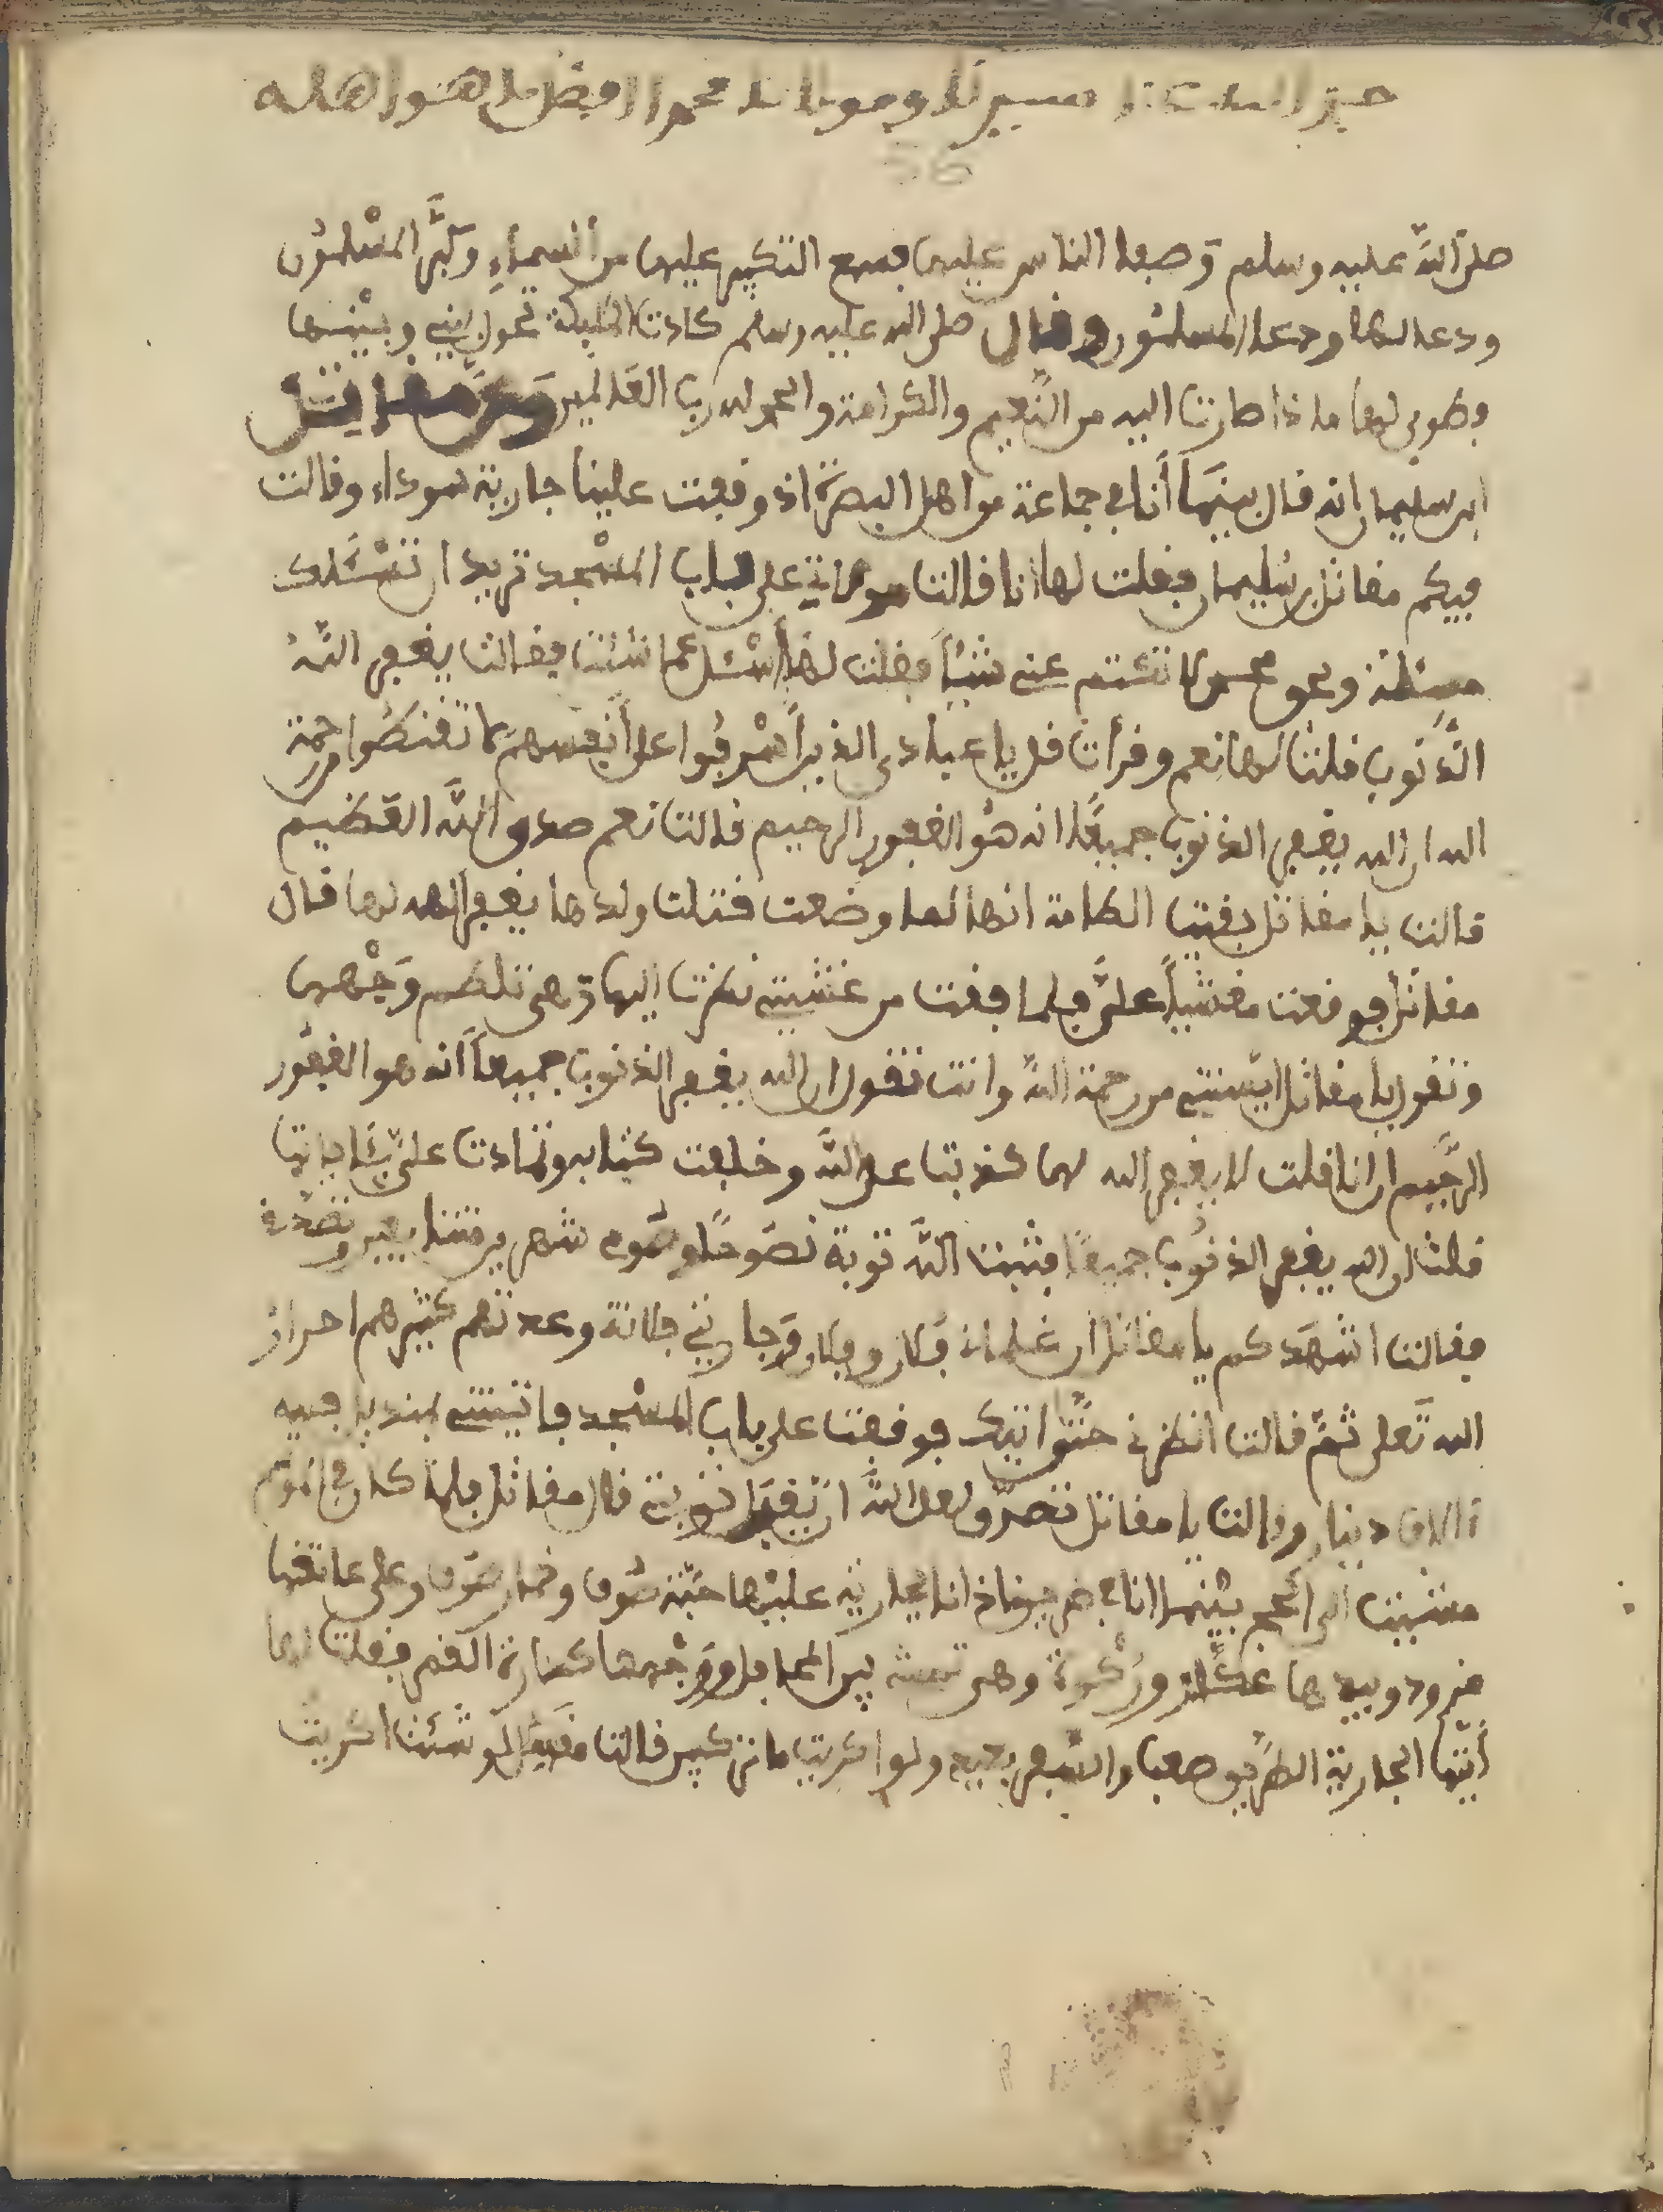 سيدنا ومولانا محمد
56
صلى اللّه عليه وسلم وصعد الناس عليها فسمع التكبير عليها من السماءِ وكبَّر المسْلمُون
ودعا لها ودعا المسلمُون وقال صلى الله عليه وسلم كادت تحول بيني وبيْنها
وطوبى لها ماذا صارت اليه من النَّعيم والكرامة والحمد لله ربّ العَالمين وعن مقاتل
ابن سليمان انه قال بينَمَا أنا في جماعة من اهل البصرة اذ وقفت علينا جارية سوداء وقالت
فيكم مقاتل بن سُليمان فقلت لها انا قالت مولاتي على باب المسْجد تريد ان تسْئَلك
مسئلة ونحو لا تكتم عني شيْئاً فقلت لها اسْئل عما شئت فقالت يغفر اللّهُ
الذَّنوب قلت لها نعم وقرأت قل يا عبادي الذين أسْرفُوا على أنفسهم لا تقنطُوا من رحمة
الله ان الله يغفر الذنوب جميعًا انه هُو الغفور الرحيم قالت نعم صدق اللَّه العَظيم
قالت يا مقاتل بقيت انها لما وضعت قتلت ولدها يغفر الله لها قال
مقاتل فوقعت مغشيّاً علىَّ فلما فقت من غشيتي نظرت اليها وهى تلطم وَجْهها
وتقول يا مقاتل ايسْتني من رحمة اللّه وانت تقول ان الله يغفر الذنوب جميعاً انه هو الغفُور
الرَّحيم ان انا قلت لا يغفر الله لها كذبت على اللَّه وخلفت كتابه وتمادت على
قلت ان الله يغفر الذنُوب جميعًا فتبت اللَّه توبة نصُوحًا وصَوم شهرين متتابعين وتصدَّق
فقالت اشهَدكم يا مقاتل ان غلماني فلان وفلان وَجاريتي فلانة وعدتهم كثيرهم احرار
الله تَعلى ثمَّ قالت انظرني حتَّى اتيك فوقفت على باب المسْجد فاتيتني بمنديل فيه
الاف دينار وقالت يا مقاتل تصدَّق لعل اللَّه ان يقبَل توبتي قال مقاتل فلما كان في
مشيت الى الحج بيْنما انا في اذ انا بجارية عليْها جبّة صُوف وخمار صُوف وعلى عاتقها
مزود وبيدها عكّاز ورَكْوة وهى تمشي بين المحامل ووجْهها كدارة القمر فقلت لها
أيتها الجارية الطَّريق صعب والسَّفر بعيد ولو اكريت ما تركبين قالت لو شئت اكريتُ